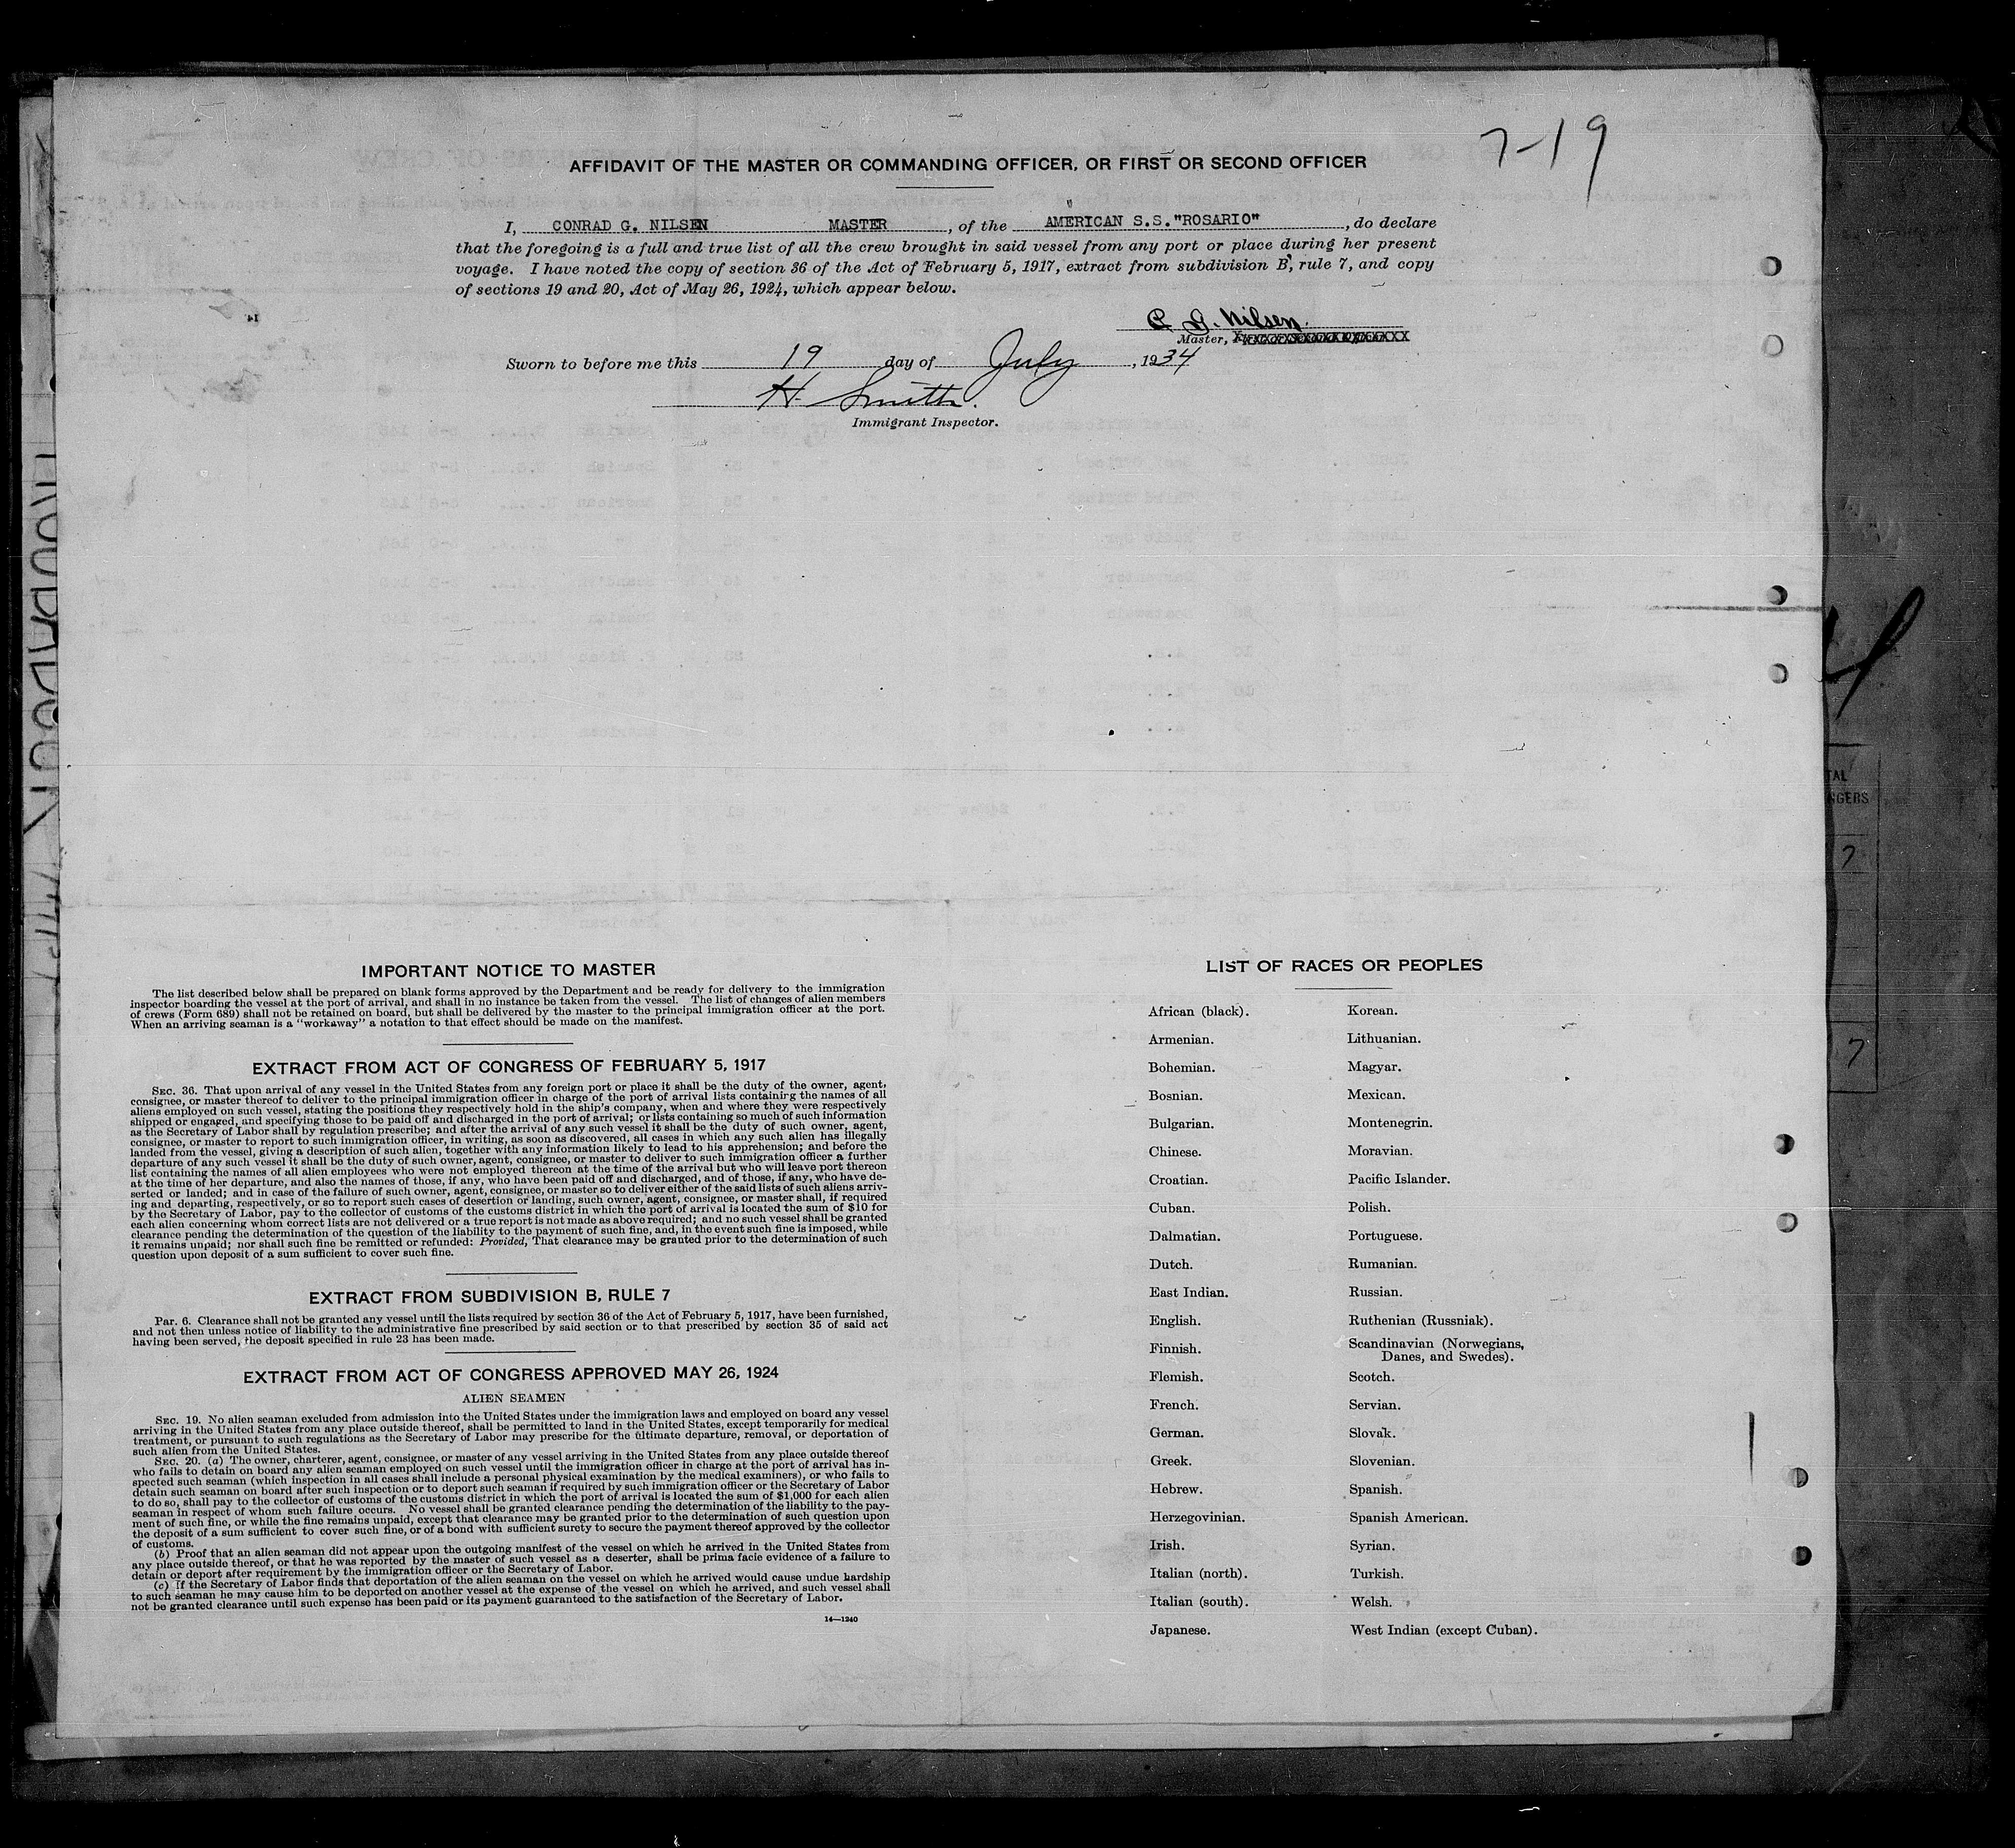 7-19
AFFIDAVIT OF THE MASTER OR COMMANDING OFFICER, OR FIRST OR SECOND OFFICER
I, CONRAD G. NILSEN MASTER, of the AMERICAN S.S."ROSARIO", do declare
that the foregoing is a full and true list of all the crew brought in said vessel from any port or place during her present
voyage. I have noted the copy of section 36 of the Act of February 5, 1917, extract from subdivision B, rule 7, and copy
of sections 19 and 20, Act of May 26, 1924, which appear below.
C G. Nilsen.
Master,
Sworn to before me this 19 day of July, 1934
H Smith.
Immigrant Inspector.
IMPORTANT NOTICE TO MASTER
The list described below shall be prepared on blank forms approved by the Department and be ready for delivery to the immigration
inspector boarding the vessel at the port of arrival, and shall in no instance be taken from the vessel. The list of changes of alien members
of crews (Form 689) shall not be retained on board, but shall be delivered by the master to the principal immigration officer at the port.
When an arriving seaman is a "workaway" a notation to that effect should be made on the manifest.
EXTRACT FROM ACT OF CONGRESS OF FEBRUARY 5, 1917
SEC. 36. That upon arrival of any vessel in the United States from any foreign port or place it shall be the duty of the owner, agent,
consignee, or master thereof to deliver to the principal immigration officer in charge of the port of arrival lists containing the names of all
aliens employed on such vessel, stating the positions they respectively hold in the ship's company, when and where they were respectively
shipped or engaged, and specifying those to be paid off and discharged in the port of arrival; or lists containing so much of such information
as the Secretary of Labor shall by regulation prescribe; and after the arrival of any such vessel it shall be the duty of such owner, agent,
consignee, or master to report to such immigration officer, in writing, as soon as discovered, all cases in which any such alien has illegally
landed from the vessel, giving a description of such alien, together with any information likely to lead to his apprehension; and before the
departure of any such vessel it shall be the duty of such owner, agent, consignee, or master to deliver to such immigration officer a further
list containing the names of all alien employees who were not employed thereon at the time of the arrival but who will leave port thereon
at the time of her departure, and also the names of those, if any, who have been paid off and discharged, and of those, if any, who have de-
serted or landed; and in case of the failure of such owner, agent, consignee, or master so to deliver either of the said lists of such aliens arriv-
ing and departing, respectively, or so to report such cases of desertion or landing, such owner, agent, consignee, or master shall, if required
by the Secretary of Labor, pay to the collector of customs of the customs district in which the port of arrival is located the sum of $10 for
each alien concerning whom correct lists are not delivered or a true report is not made as above required; and no such vessel shall be granted
clearance pending the determination of the question of the liability to the payment of such fine, and, in the event such fine is imposed, while
it remains unpaid; nor shall such fine be remitted or refunded: Provided, That clearance may be granted prior to the determination of such
question upon deposit of a sum sufficient to cover such fine.
EXTRACT FROM SUBDIVISION B, RULE 7
Par. 6. Clearance shall not be granted any vessel until the lists required by section 36 of the Act of February 5, 1917, have been furnished,
and not then unless notice of liability to the administrative fine prescribed by said section or to that prescribed by section 35 of said act
having been served, the deposit specified in rule 23 has been made.
EXTRACT FROM ACT OF CONGRESS APPROVED MAY 26, 1924
ALIEN SEAMEN
SEC. 19. No alien seaman excluded from admission into the United States under the immigration laws and employed on board any vessel
arriving in the United States from any place outside thereof, shall be permitted to land in the United States, except temporarily for medical
treatment, or pursuant to such regulations as the Secretary of Labor may prescribe for the ultimate departure, removal, or deportation of
such alien from the United States.
SEC. 20. (a) The owner, charterer, agent, consignee, or master of any vessel arriving in the United States from any place outside thereof
who fails to detain on board any alien seaman employed on such vessel until the immigration officer in charge at the port of arrival has in-
spected such seaman (which inspection in all cases shall include a personal physical examination by the medical examiners), or who fails to
detain such seaman on board after such inspection or to deport such seaman if required by such immigration officer or the Secretary of Labor
to do so, shall pay to the collector of customs of the customs district in which the port of arrival is located the sum of $1,000 for each alien
seaman in respect of whom such failure occurs. No vessel shall be granted clearance pending the determination of the liability to the pay-
ment of such fine, or while the fine remains unpaid, except that clearance may be granted prior to the determination of such question upon
the deposit of a sum sufficient to cover such fine, or of a bond with sufficient surety to secure the payment thereof approved by the collector
of customs.
(b) Proof that an alien seaman did not appear upon the outgoing manifest of the vessel on which he arrived in the United States from
any place outside thereof, or that he was reported by the master of such vessel as a deserter, shall be prima facie evidence of a failure to
detain or deport after requirement by the immigration officer or the Secretary of Labor.
(c) If the Secretary of Labor finds that deportation of the alien seaman on the vessel on which he arrived would cause undue hardship
to such seaman he may cause him to be deported on another vessel at the expense of the vessel on which he arrived, and such vessel shall
not be granted clearance until such expense has been paid or its payment guaranteed to the satisfaction of the Secretary of Labor.
14—1240
LIST OF RACES OR PEOPLES
African (black). Korean.
Armenian. Lithuanian.
Bohemian. Magyar.
Bosnian. Mexican.
Bulgarian. Montenegrin.
Chinese. Moravian.
Croatian. Pacific Islander.
Cuban. Polish.
Dalmatian. Portuguese.
Dutch. Rumanian.
East Indian. Russian.
English. Ruthenian (Russniak).
Finnish. Scandinavian (Norwegians,
Danes, and Swedes).
Flemish. Scotch.
French. Servian.
German. Slovak.
Greek. Slovenian.
Hebrew. Spanish.
Herzegovinian. Spanish American.
Irish. Syrian.
Italian (north). Turkish.
Italian (south). Welsh.
Japanese. West Indian (except Cuban).